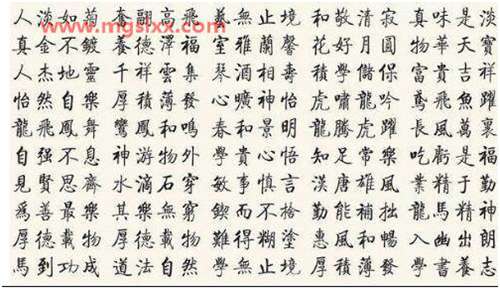 www.mgslxx.com
人淡如菊 養翮高飛 義無止境 和敬清寂 真味是淡
真金不鍍 養德澤福 室雅蘭馨 花好月圓 物華天寶
人杰地靈 千祥雲集 琴酒相壽 積學儲保 富貴吉祥
怡然自樂 厚積薄發 心曠神怡 虎嘯龍吟 鳶飛魚躍
龍飛鳳舞 鸞鳳和鳴 春和景明 龍騰虎躍 長風萬裏
自强不息 神游物外 學貴心悟 知足常樂 吃虧是福
見賢思齊 水滴石穿 敏事慎言 漢唐雄風 業精于勤
爲善最樂 其樂無窮 鍥而不捨 勤能補拙 龍馬精神
厚德載物 厚德載物 難得糊塗 惠風和暢 入幽出朗
馬到功成 道法自然 學無止境 厚積薄發 學書養志